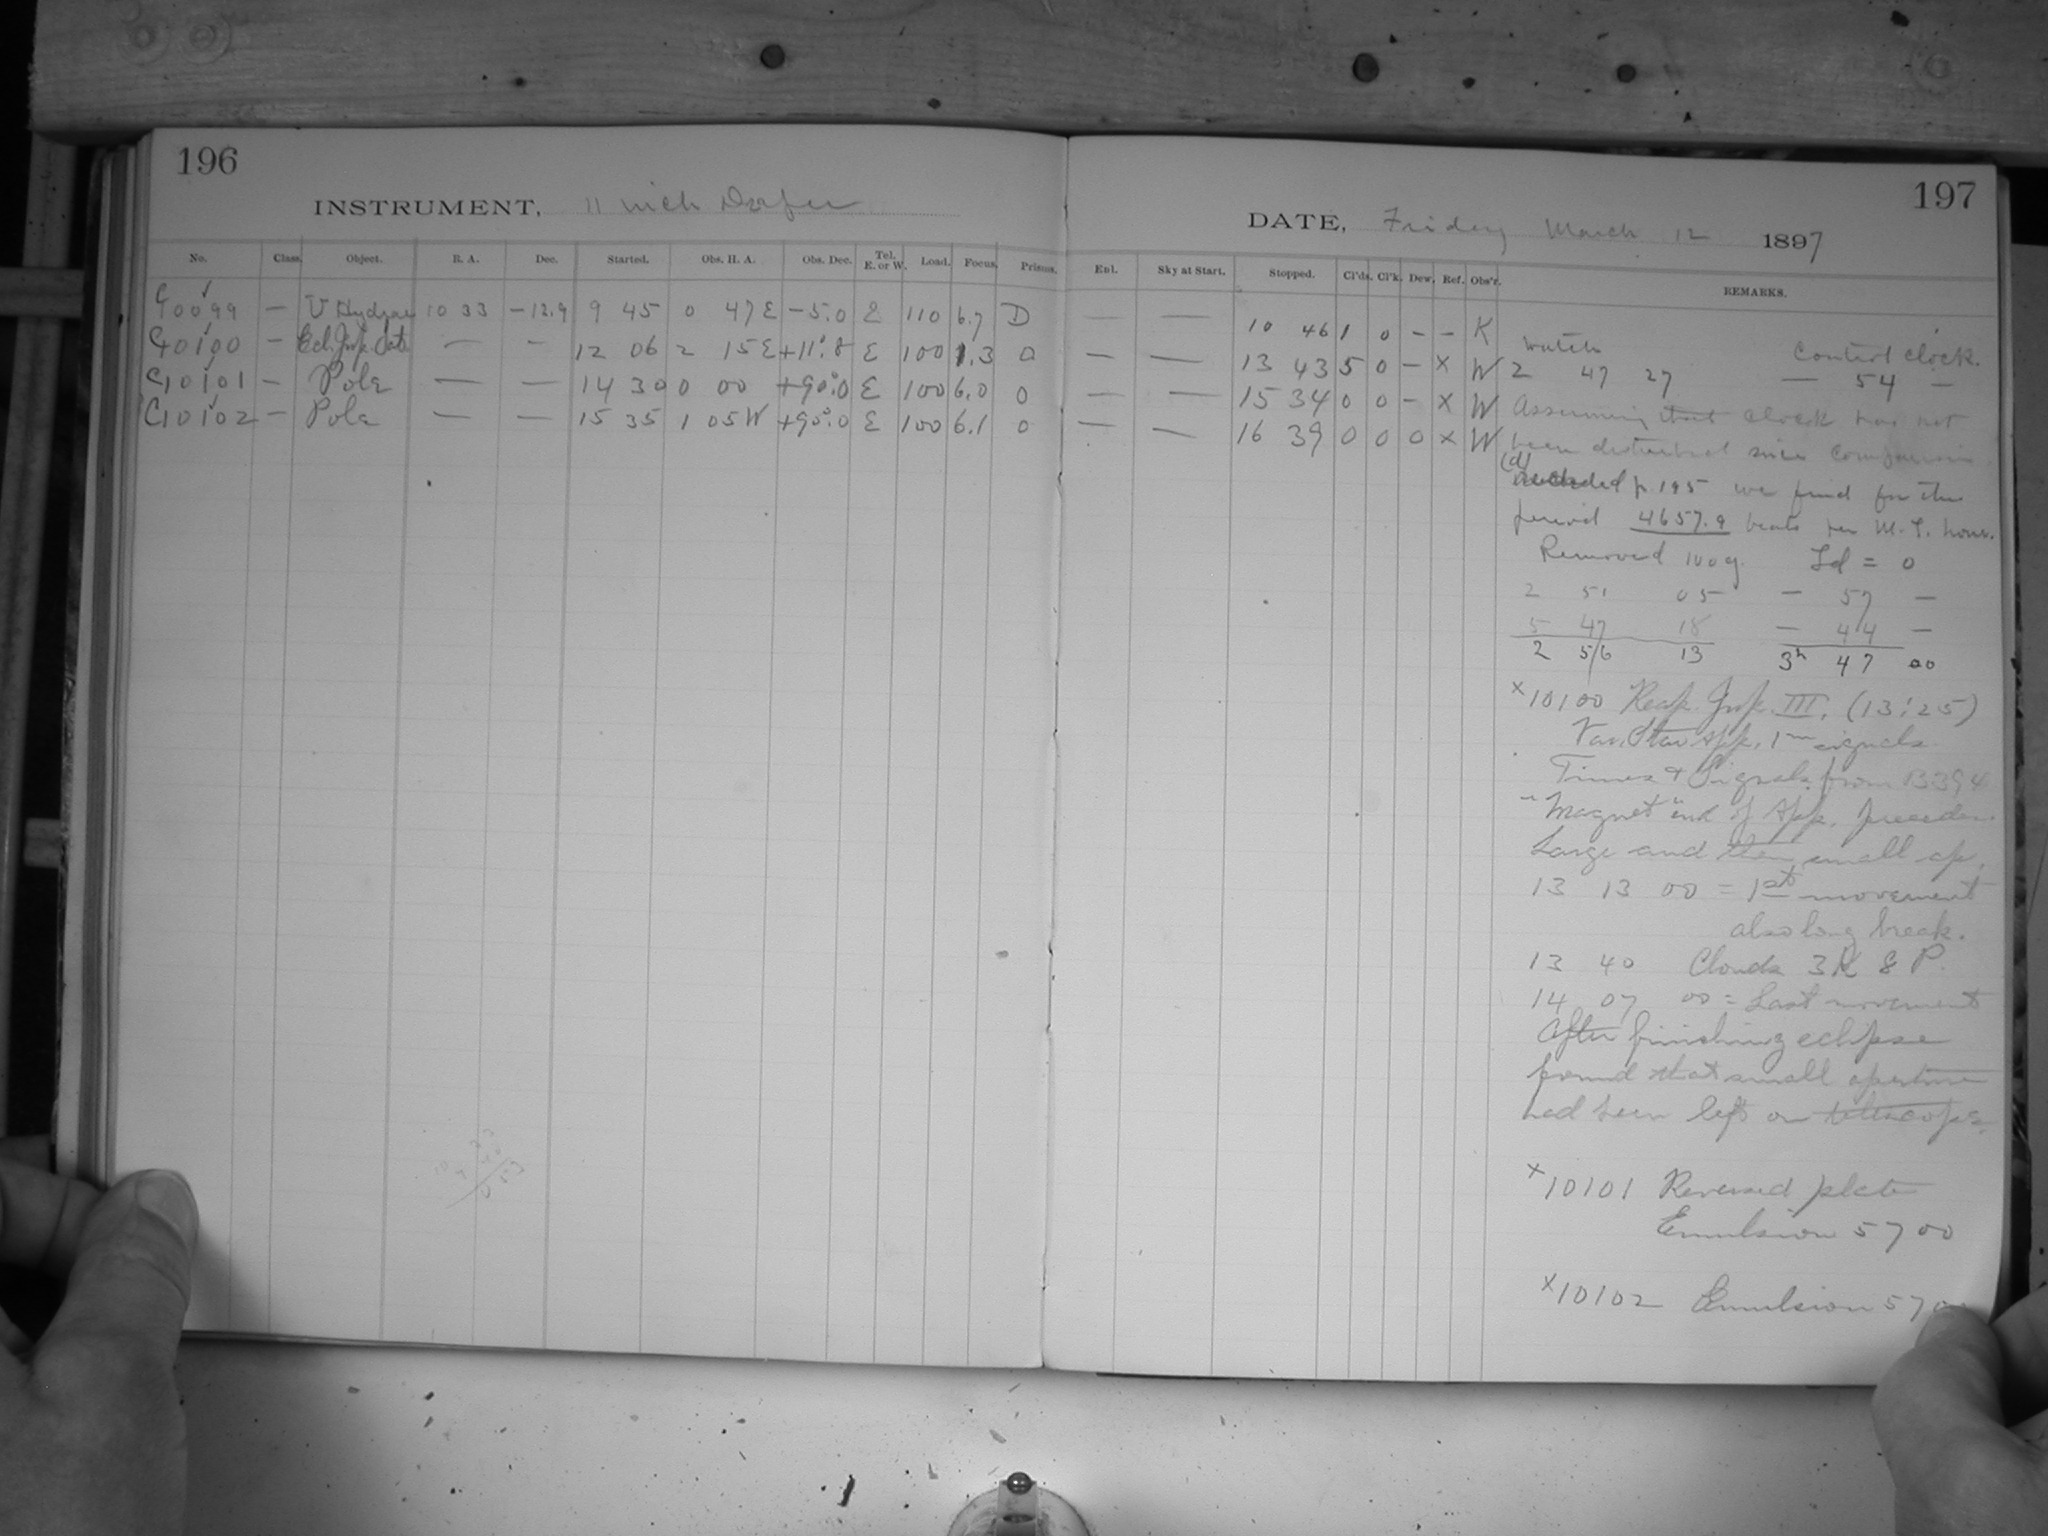 196
INSTRUMENT, 11 inch Draper
No. Class. Object. R. A. Dec. Started. Obs. H. A. Obs. Dec. Tel. E. or W. Load. Focus. Prisms.
C10099 — U Hydrae 10 33 −12.9 9 45 0 47 E −5.0 E 110 6.7 D
C10100 — Ecl. Jup. Sats — — 12 06 2 15 E +11.8 E 100 1.3 0
C10101 — Pole — — 14 30 0 00 +90.0 E 100 6.0 0
C10102 — Pole — — 15 35 1 05 W +90.0 E 100 6.1 0
197
DATE, Friday March 12 1897
Enl. Sky at Start. Stopped. Cl'ds. Cl'k. Dew. Ref. Obs'r. REMARKS.
— — 10 46 1 0 – – K
— — 13 43 5 0 – x W
— — 15 34 0 0 – x W
— — 16 39 0 0 0 x W
watch Control clock.
2 47 27 — 54 —
Assuming that clock has not
been disturbed since comparison
(d) p. 195 we find for the
period 4657.9 beats per M. T. hour.
Removed 100g. Ld = 0
2 51 05 — 57 —
5 47 18 — 44 —
2 56 13 3h 47 00
x10100 Reap. Jup. III. (13:25)
Var. Star App. 1m signals
Times & Signals from 13394
"Magnet" end of App. precedes.
Large and then small ap.
13 13 00 = 1st movement
also long break.
13 40 Clouds 3 K & P
14 07 00 = Last movement
After finishing eclipse
found that small aperture
had been left on telescope.
x10101 Reversed plate
Emulsion 5700
x10102 Emulsion 570